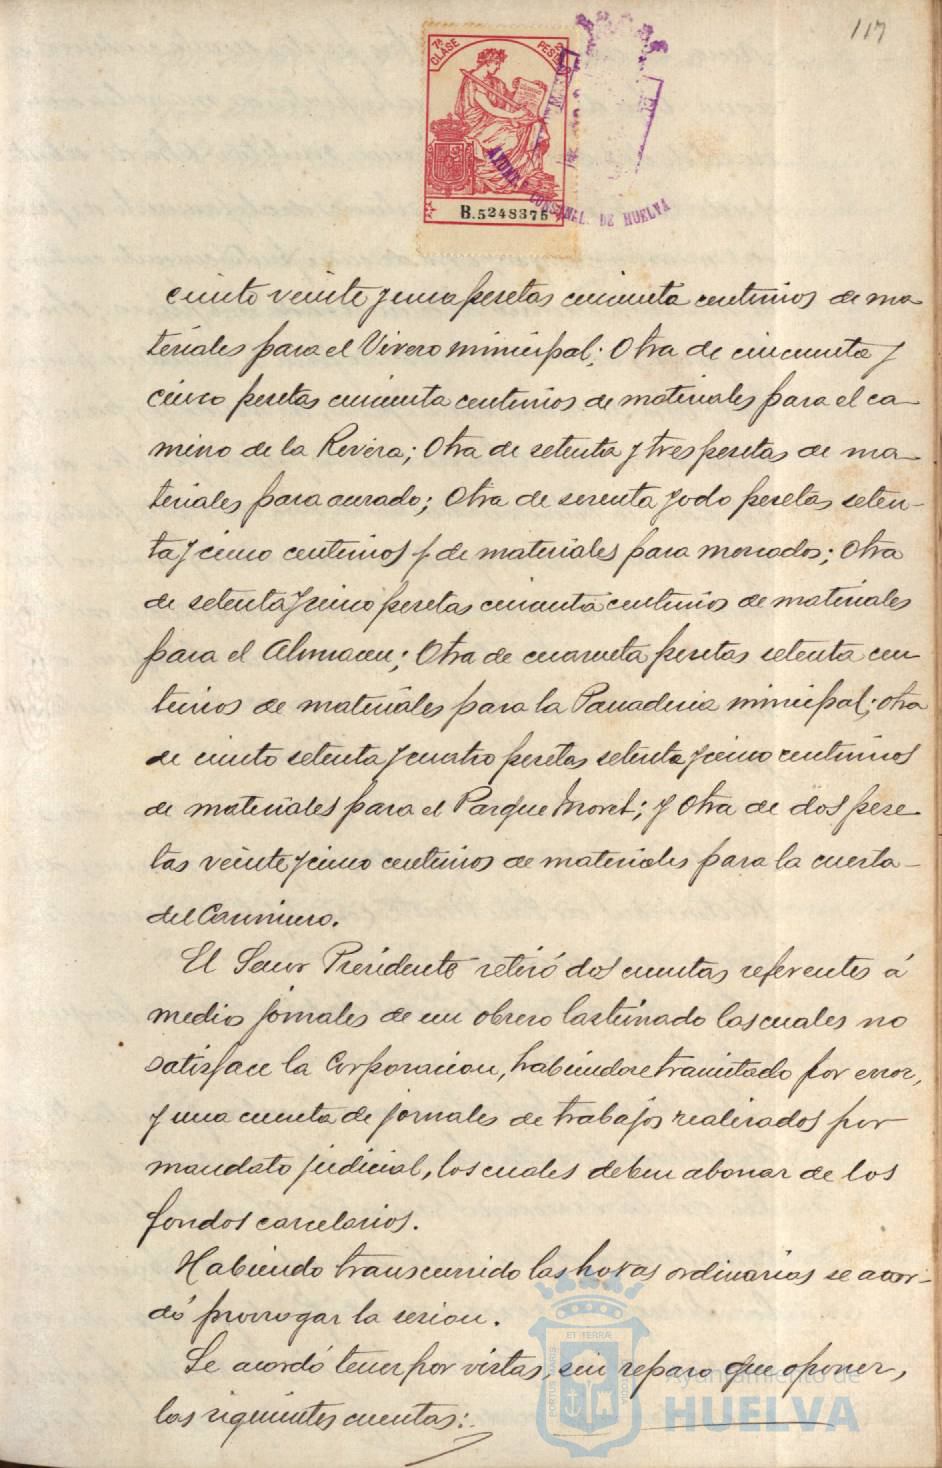 117
7ª CLASE
PESETAS
B.5248375
AYUNT. CONSTNAL. DE HUELVA
ciento veinte y una pesetas cincuenta centimos de ma
teriales para el Vivero municipal; Otra de cincuenta y
cinco pesetas cincuenta centimos de materiales para el ca-
mino de la Rivera; Otra de setenta y tres pesetas de ma-
teriales para acerado; Otra de sesenta y odo pesetas seten-
ta y cinco centimos p de materiales para mercados; Otra
de setenta y cinco pesetas cincuenta centimos de materiales
para el Almacen; Otra de cuarenta pesetas setenta cen
timos de materiales para la Panaderia municipal; otra
de ciento setenta y cuatro pesetas setenta y cinco centimos
de materiales para el Parque Moret; y Otra de dos pese-
tas veinte y cinco centimos de materiales para la cuesta-
del Carnicero.
El Señor Presidente retiró dos cuentas referentes á
medios jornales de un obrero lastimado las cuales no
satisface la Corporacion, habiendose tramitado por error,
y una cuenta de jornales de trabajos realizados por
mandato judicial, los cuales deben abonar de los
fondos carcelarios.
Habiendo transcurrido las horas ordinarias se acor-
dó prorrogar la sesion.
Se acordó tener por vistas, sin reparo que oponer,
las siguientes cuentas:
ET TERRÆ
PORTUS MARIS
CUSTODIA
Ayuntamiento de
HUELVA